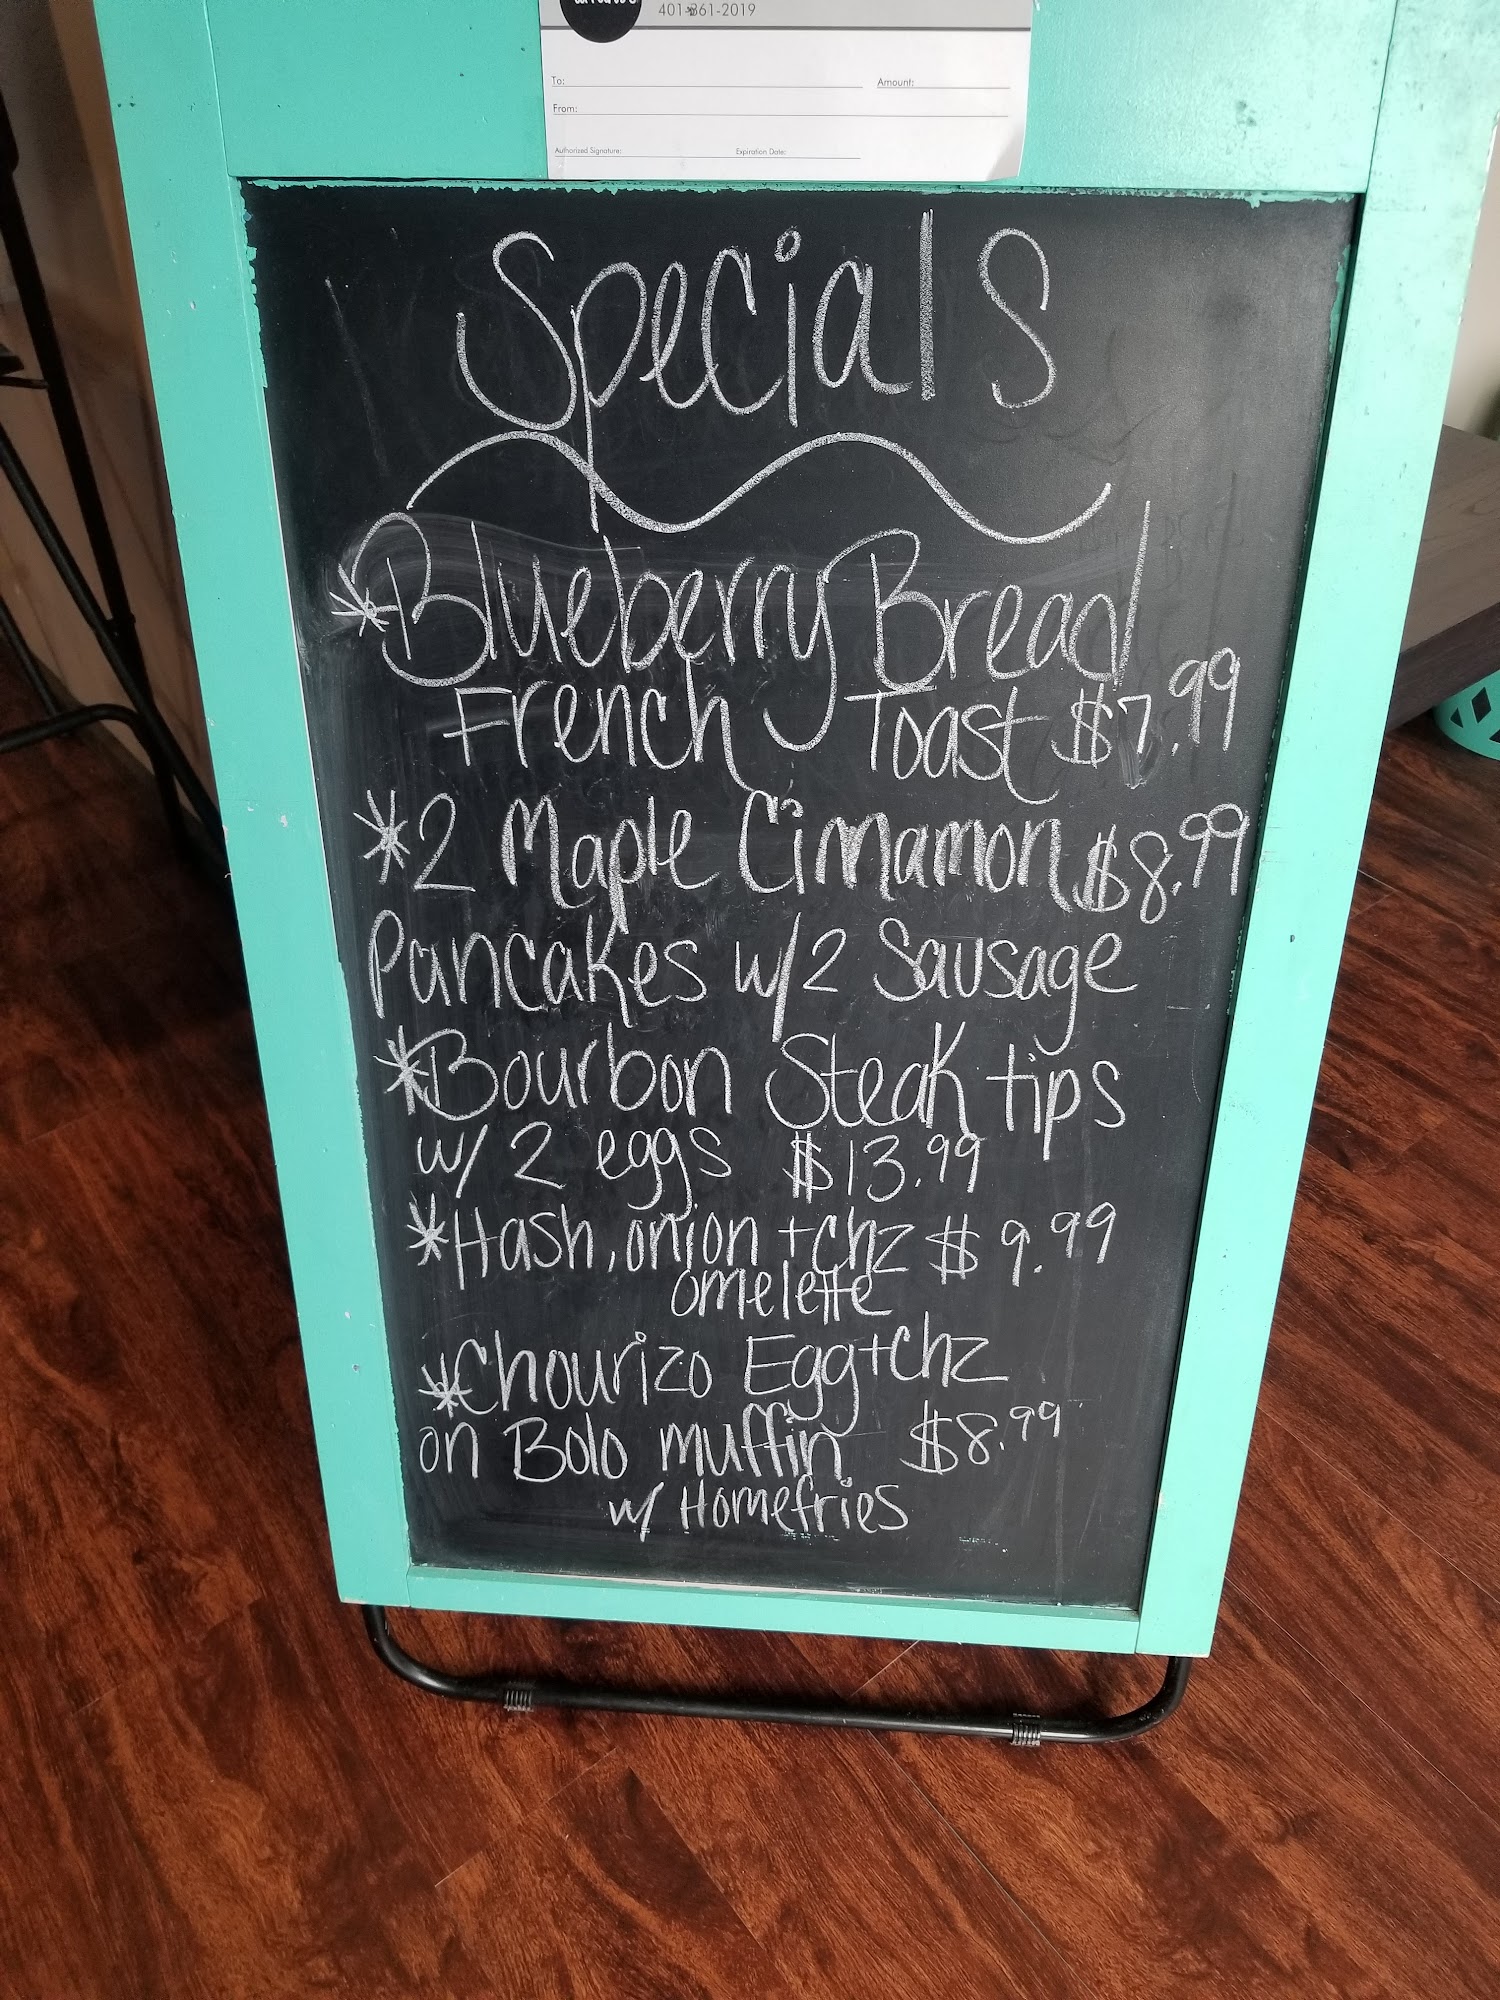 401-861-2019
To:
Amount:
From:
Authorized Signature:
Expiration Date:
Specials
*Blueberry Bread
French Toast $7.99
*2 Maple Cinnamon $8.99
Pancakes w/2 Sausage
*Bourbon Steak tips
w/ 2 eggs $13.99
*Hash, onion +chz $9.99
omelette
*Chourizo Egg+chz
on Bolo muffin $8.99
w/ Homefries